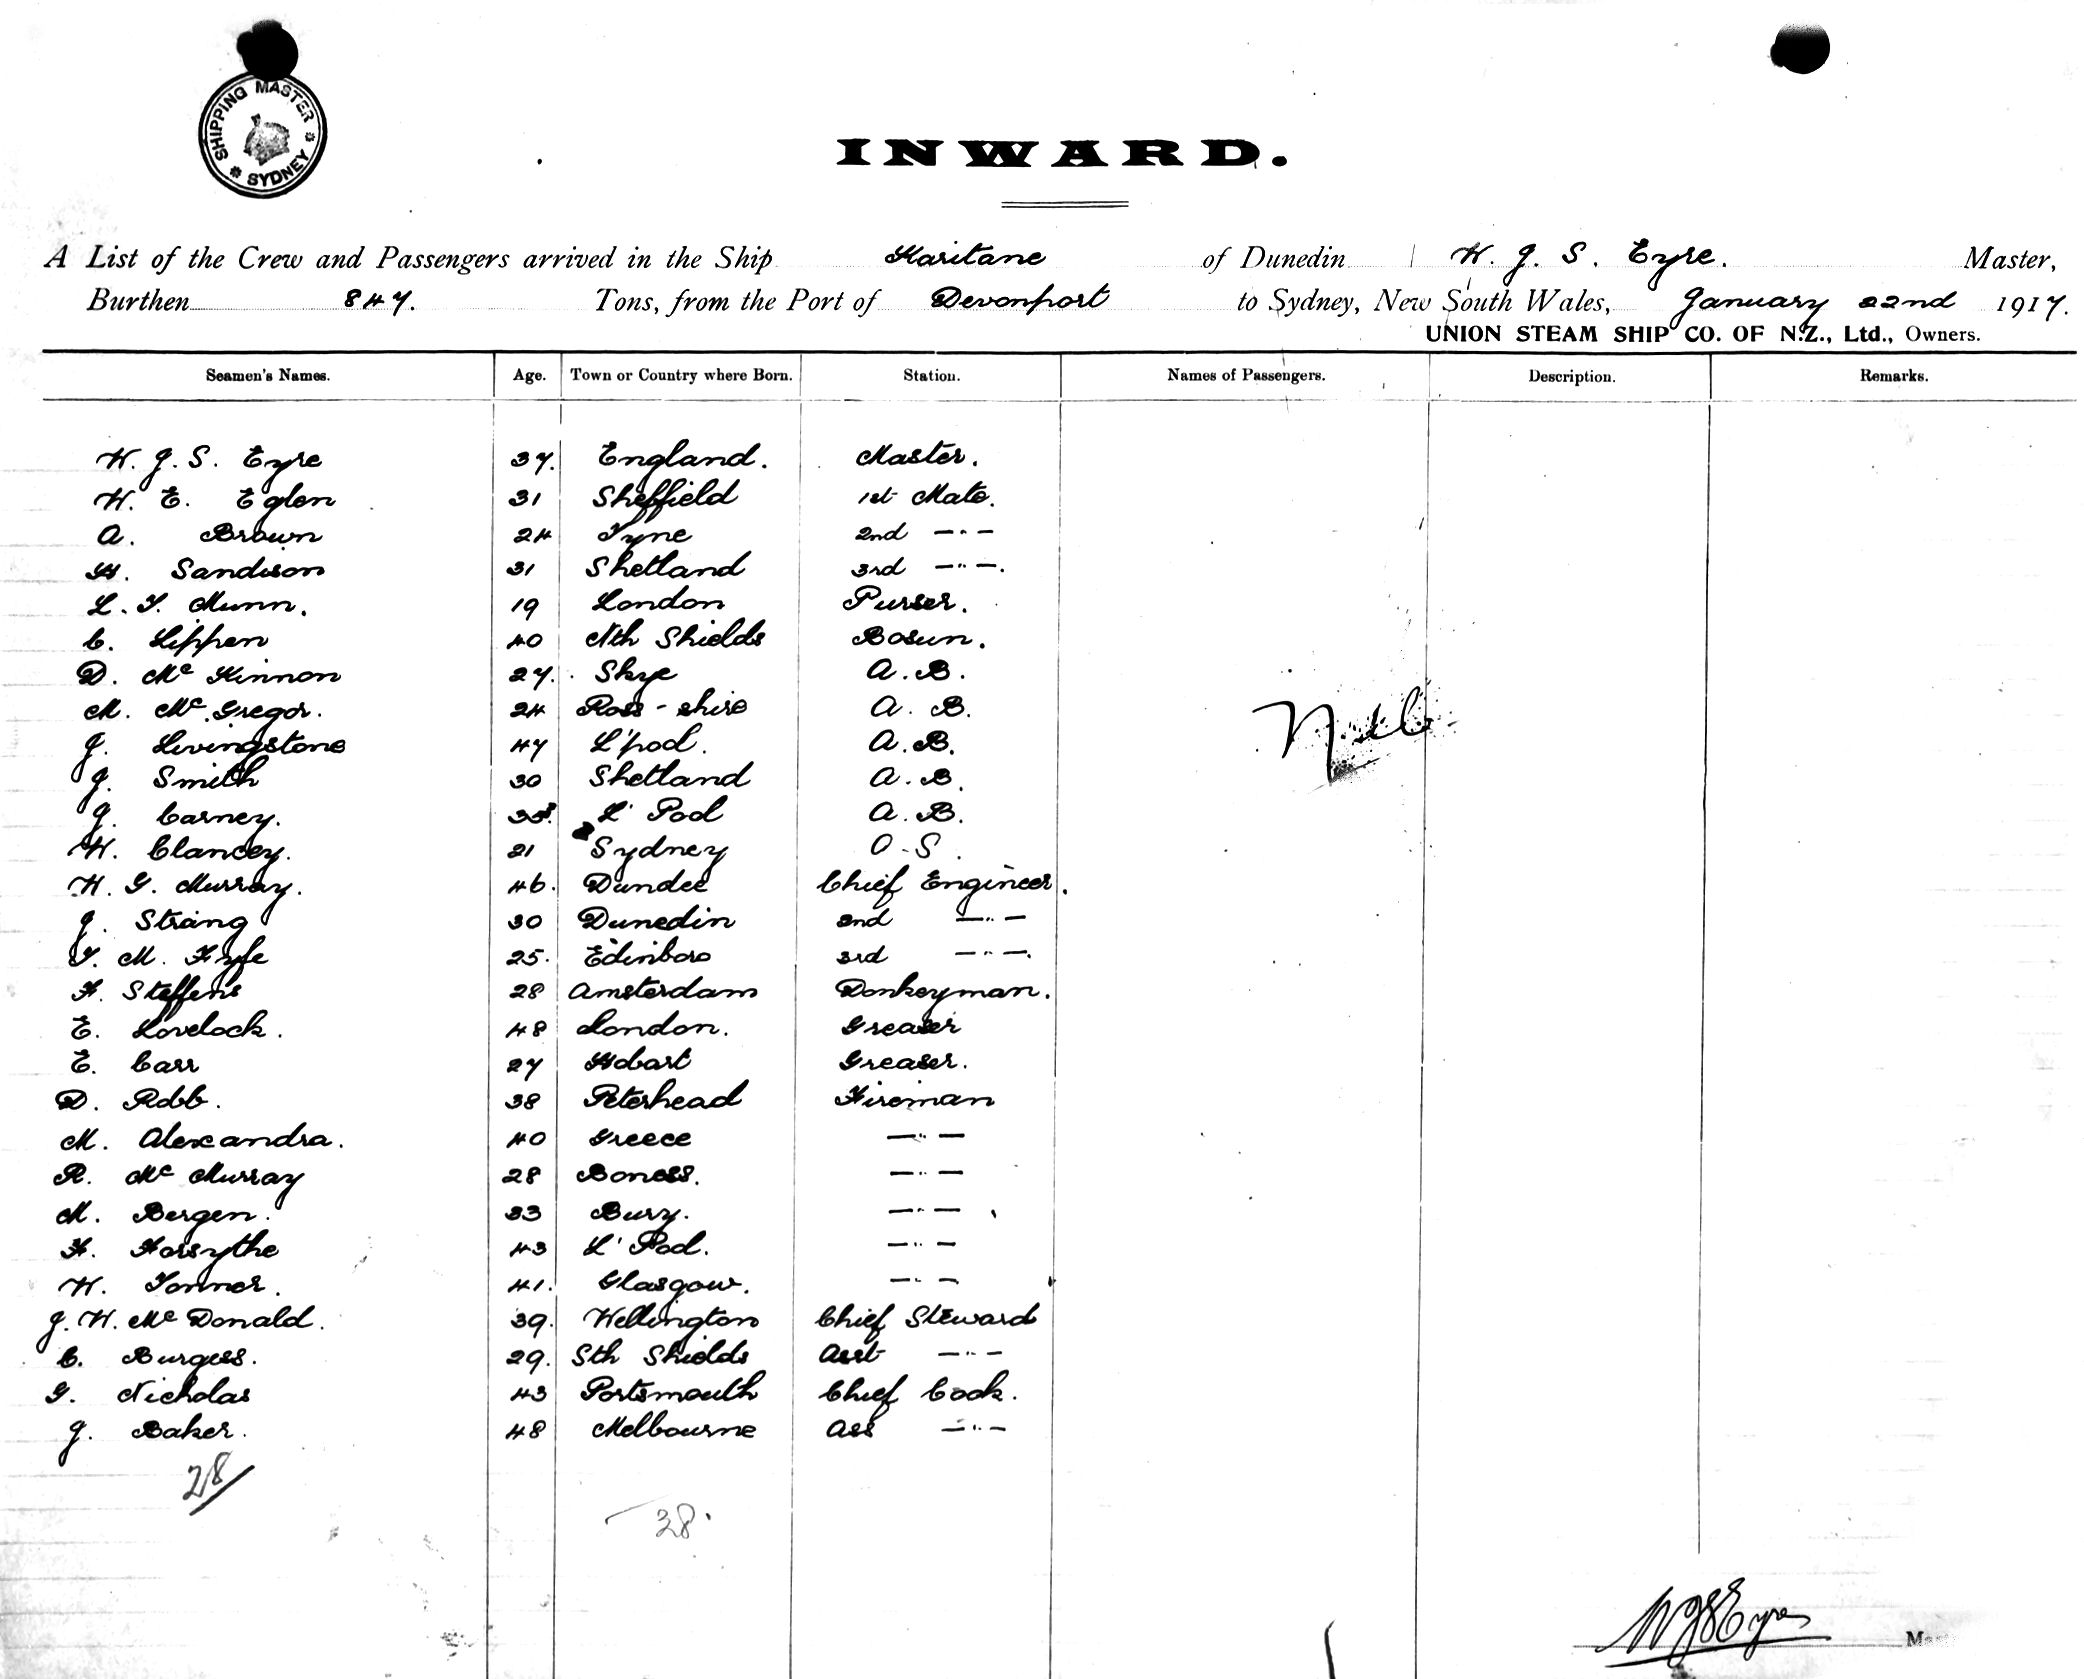 SHIPPING MASTER SYDNEY
INWARD.
A List of the Crew and Passengers arrived in the Ship Karitane of Dunedin W. J. S. Eyre. Master,
Burthen 847. Tons, from the Port of Devonport to Sydney, New South Wales, January 22nd 1917.
UNION STEAM SHIP CO. OF N.Z., Ltd., Owners.
Seamen's Names. Age. Town or Country where Born. Station. Names of Passengers. Description. Remarks.
W. J. S. Eyre 37. England. Master.
W. E. Eglen 31 Sheffield 1st Mate.
A. Brown 24 Tyne 2nd —"—
H. Sandison 31 Shetland 3rd —"—.
L. T. Munn. 19 London Purser.
C. Lippen 40 Nth Shields Bosun.
D. McKinnon 27. Skye A. B.
M. McGregor. 24 Ross-shire A. B.
J. Livingstone 47 L'pool. A. B.
J. Smith 30 Shetland A. B.
J. Carney. L' Pool A. B.
W. Clancey. 21 Sydney O-S.
W. G. Murray. 46. Dundee Chief Engineer.
J. Strang 30 Dunedin 2nd —"—
T. M. Fyfe 25. Edinboro 3rd —"—.
F. Steffens 28 Amsterdam Donkeyman.
E. Lovelock. 48 London. Greaser
E. Carr 27 Hobart Greaser.
D. Robb. 38 Peterhead Fireman
M. Alexandra. 40 Greece —"—
R. McMurray 28 Boness. —"—
M. Bergen. 33 Bury. —"—
F. Forsythe 43 L' Pool. —"—
W. Tonner. 41. Glasgow. —"—
J. W. McDonald. 39. Wellington Chief Steward
C. Burgess. 29. Sth Shields Asst —"—
G. Nicholas 43 Portsmouth Chief Cook.
J. Baker. 48 Melbourne Ass —"—
28/
28.
WJSEyre